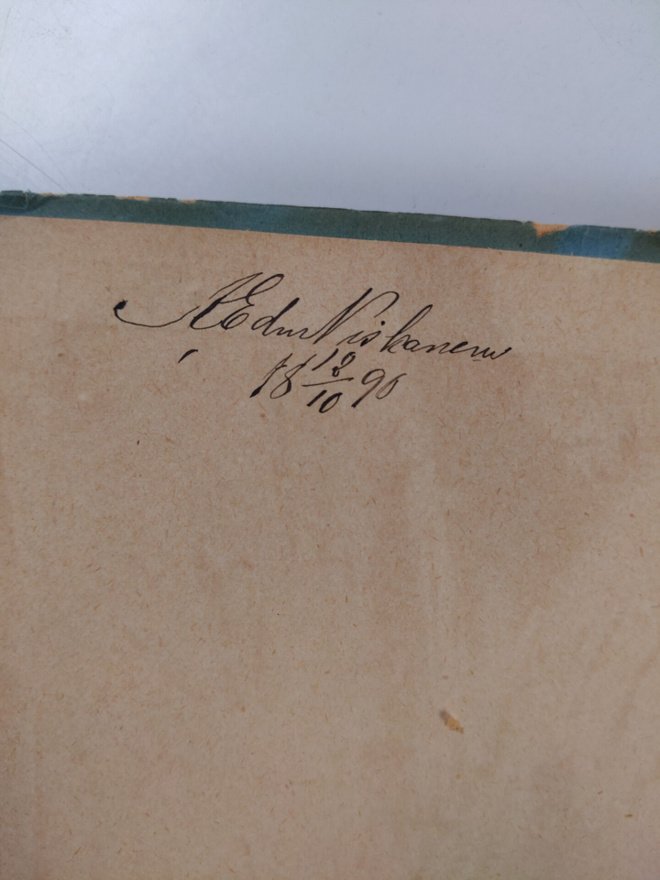 A Edv Niskanen
18 18/10 90